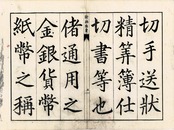 切手送狀
精筭簿仕
切書等也
偖通用之
金銀貨幣
紙幣之稱